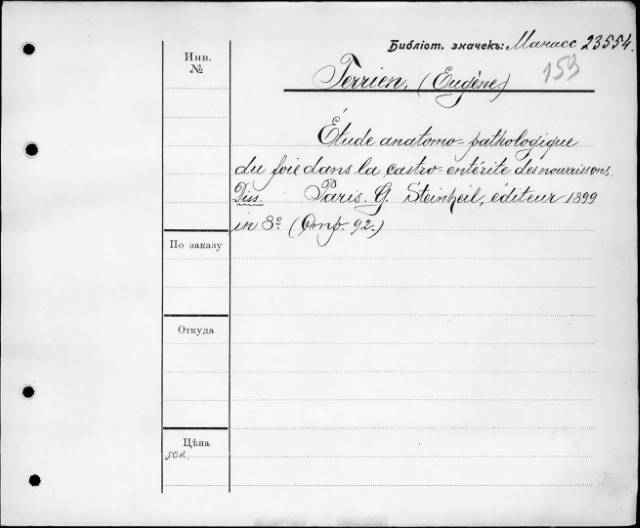 Библіот. значекъ: Манасс 23554.
159
Инв.
№
Terrien, (Eugène)
Étude anatomo-pathologique
du foie dans la castro-entérite des nourrissons.
Diss. Paris. G. Steinheil, éditeur 1899
in 8º (Стр. 92.)
По заказу
Откуда
Цѣна
50к.